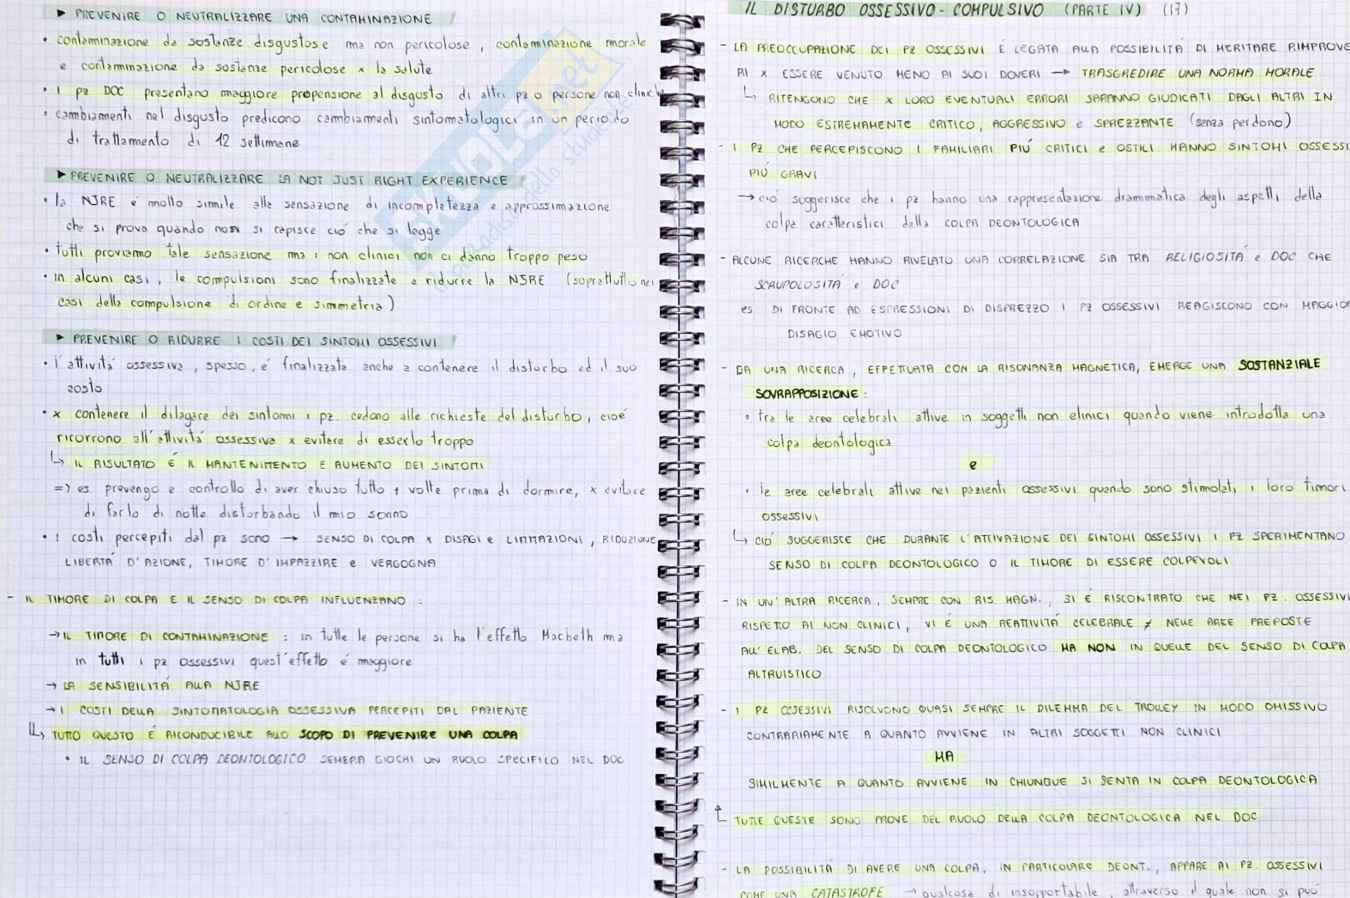 ► PREVENIRE O NEUTRALIZZARE UNA CONTAMINAZIONE
• contaminazione da sostanze disgustose ma non pericolose, contaminazione morale
e contaminazione da sostanze pericolose x la salute
• i pz DOC presentano maggiore propensione al disgusto di altri pz o persone non clinich
• cambiamenti nel disgusto predicono cambiamenti sintomatologici in un periodo
di trattamento di 12 settimane
► PREVENIRE O NEUTRALIZZARE LA NOT JUST RIGHT EXPERIENCE
• la NJRE è molto simile alla sensazione di incompletezza e approssimazione
che si prova quando non si capisce ciò che si legge
• tutti proviamo tale sensazione ma i non clinici non ci danno troppo peso
• in alcuni casi, le compulsioni sono finalizzate a ridurre la NJRE (soprattutto nei
casi della compulsione di ordine e simmetria)
► PREVENIRE O RIDURRE I COSTI DEI SINTOMI OSSESSIVI
• l'attività ossessiva, spesso, è finalizzata anche a contenere il disturbo ed il suo
costo
• x contenere il dilagare dei sintomi i pz. cedono alle richieste del disturbo, cioè
ricorrono all'attività ossessiva x evitare di esserlo troppo
↳ IL RISULTATO È IL MANTENIMENTO E AUMENTO DEI SINTOMI
=> es. prevengo e controllo di aver chiuso tutto 4 volte prima di dormire, x evitare
di farlo di notte disturbando il mio sonno
• i costi percepiti dal pz sono → SENSO DI COLPA X DISAGI e LIMITAZIONI, RIDUZIONE
LIBERTÀ D'AZIONE, TIMORE D'IMPAZZIRE e VERGOGNA
- IL TIMORE DI COLPA E IL SENSO DI COLPA INFLUENZANO :
→ IL TIMORE DI CONTAMINAZIONE : in tutte le persone si ha l'effetto Macbeth ma
in tutti i pz ossessivi quest'effetto è maggiore
→ LA SENSIBILITÀ ALLA NJRE
→ I COSTI DELLA SINTOMATOLOGIA OSSESSIVA PERCEPITI DAL PAZIENTE
↳ TUTTO QUESTO È RICONDUCIBILE ALLO SCOPO DI PREVENIRE UNA COLPA
• IL SENSO DI COLPA DEONTOLOGICO SEMBRA GIOCHI UN RUOLO SPECIFILO NEL DOC
IL DISTURBO OSSESSIVO-COMPULSIVO (PARTE IV) (17)
- LA PREOCCUPAZIONE DEI PZ OSSESSIVI È LEGATA ALLA POSSIBILITÀ DI MERITARE RIMPROVE
RI X ESSERE VENUTO MENO AI SUOI DOVERI → TRASGREDIRE UNA NORMA MORALE
↳ RITENGONO CHE X LORO EVENTUALI ERRORI SARANNO GIUDICATI DAGLI ALTRI IN
MODO ESTREMAMENTE CRITICO, AGGRESSIVO e SPREZZANTE (senza perdono)
- I PZ CHE PERCEPISCONO I FAMILIARI PIÙ CRITICI e OSTILI HANNO SINTOMI OSSESSI
PIÙ GRAVI
→ ciò suggerisce che i pz hanno una rappresentazione drammatica degli aspetti della
colpa caratteristici della COLPA DEONTOLOGICA
- ALCUNE RICERCHE HANNO RIVELATO UNA CORRELAZIONE SIA TRA RELIGIOSITÀ e DOC CHE
SCRUPOLOSITÀ e DOC
es. DI FRONTE AD ESPRESSIONI DI DISPREZZO I PZ OSSESSIVI REAGISCONO CON MAGGIOR
DISAGIO EMOTIVO
- DA UNA RICERCA, EFFETTUATA CON LA RISONANZA MAGNETICA, EMERGE UNA SOSTANZIALE
SOVRAPPOSIZIONE :
• tra le aree celebrali attive in soggetti non clinici quando viene introdotta una
colpa deontologica
e
• le aree celebrali attive nei pazienti ossessivi quando sono stimolati i loro timori
ossessivi
↳ CIÒ SUGGERISCE CHE DURANTE L'ATTIVAZIONE DEI SINTOMI OSSESSIVI I PZ SPERIMENTANO
SENSO DI COLPA DEONTOLOGICO O IL TIMORE DI ESSERE COLPEVOLI
- IN UN'ALTRA RICERCA, SEMPRE CON RIS. MAGN., SI È RISCONTRATO CHE NEI PZ. OSSESSIVI
RISPETTO AI NON CLINICI, VI È UNA REATTIVITÀ CELEBRALE ≠ NELLE AREE PREPOSTE
ALL'ELAB. DEL SENSO DI COLPA DEONTOLOGICO MA NON IN QUELLE DEL SENSO DI COLPA
ALTRUISTICO
- I PZ OSSESSIVI RISOLVONO QUASI SEMPRE IL DILEMMA DEL TROLLEY IN MODO OMISSIVO
CONTRARIAMENTE A QUANTO AVVIENE IN ALTRI SOGGETTI NON CLINICI
MA
SIMILMENTE A QUANTO AVVIENE IN CHIUNQUE SI SENTA IN COLPA DEONTOLOGICA
TUTTE QUESTE SONO PROVE DEL RUOLO DELLA COLPA DEONTOLOGICA NEL DOC
- LA POSSIBILITÀ DI AVERE UNA COLPA, IN PARTICOLARE DEONT., APPARE AI PZ. OSSESSIVI
COME UNA CATASTROFE → qualcosa di insopportabile, attraverso il quale non si può